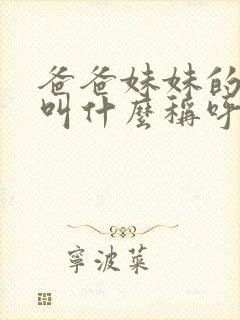 爸爸妹妹的
叫什麼稱呼
寧波菜